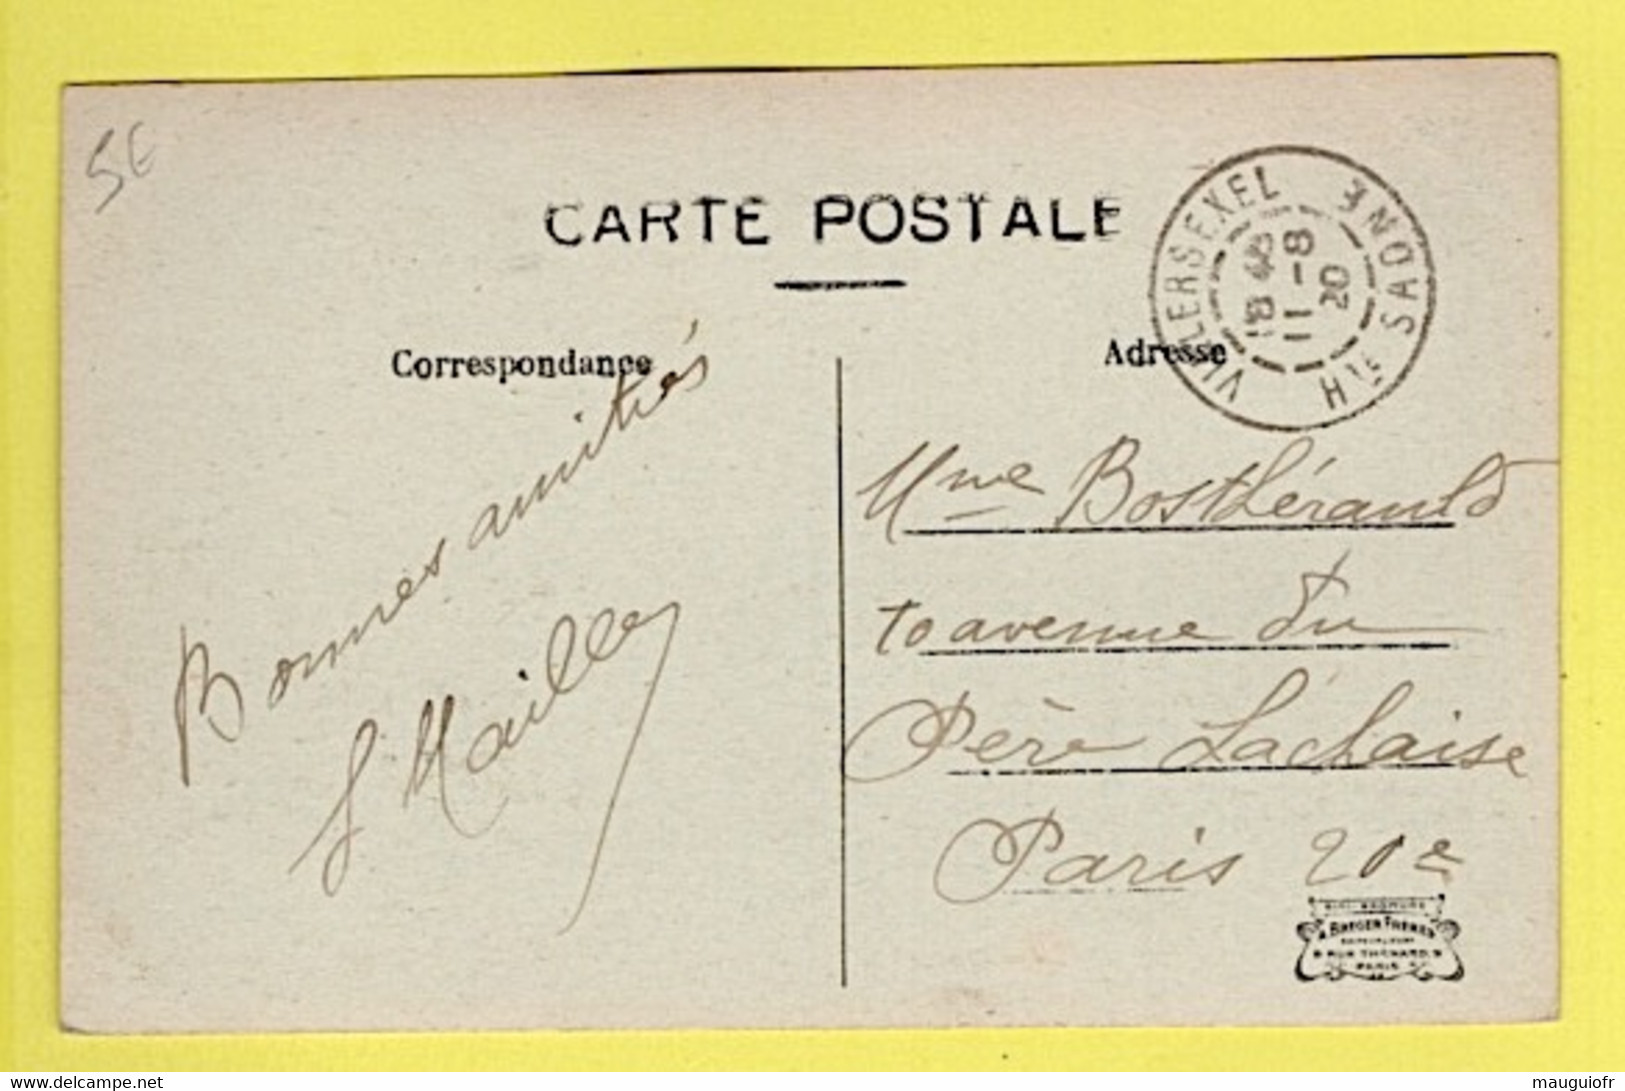 5€
CARTE POSTALE
VILLERSEXEL
Hte SAONE
11-8
20
Correspondance
Adresse
Bonnes amitiés
Mme Bosthérauld
10 avenue du
Père Lachaise
Paris 20e
A. BREGER FRÈRES
9 RUE THENARD, 9
PARIS
www.delcampe.net
mauguiofr